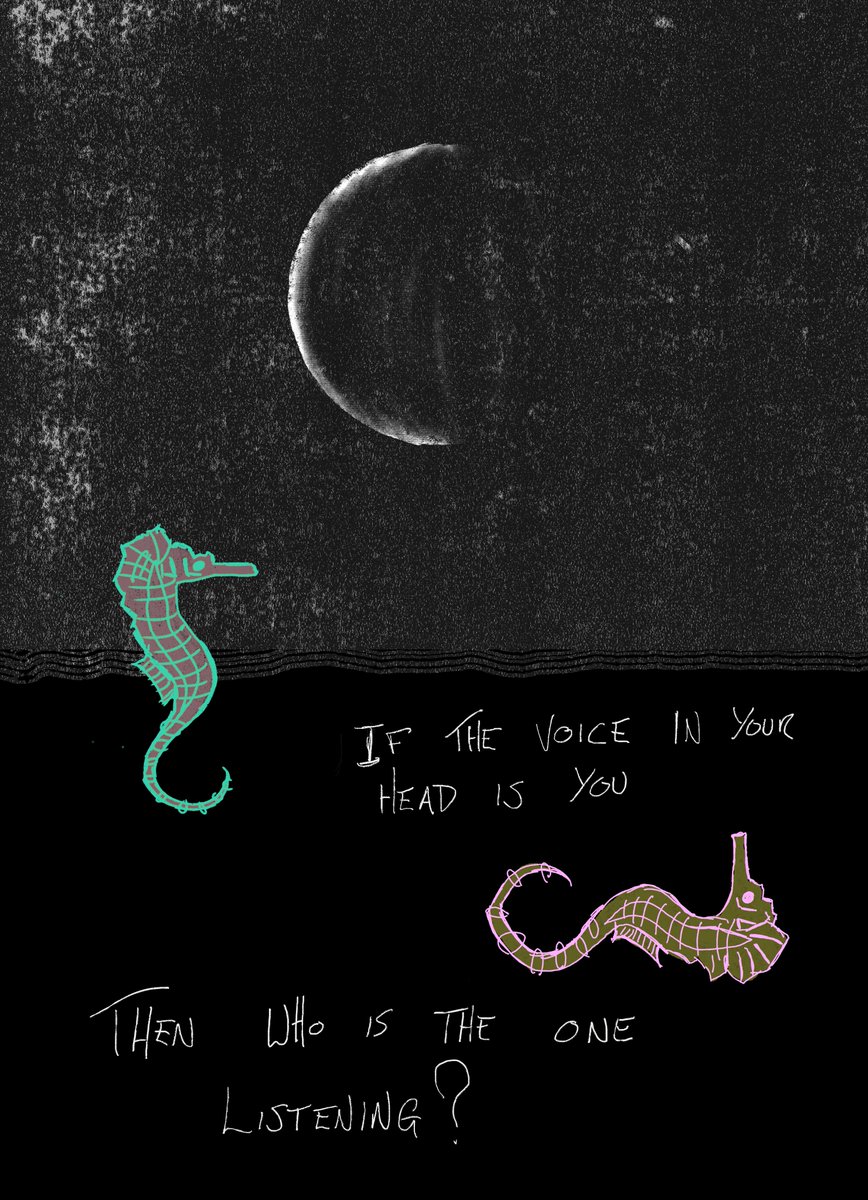 IF THE VOICE IN YOUR
HEAD IS YOU
THEN WHO IS THE ONE
LISTENING?